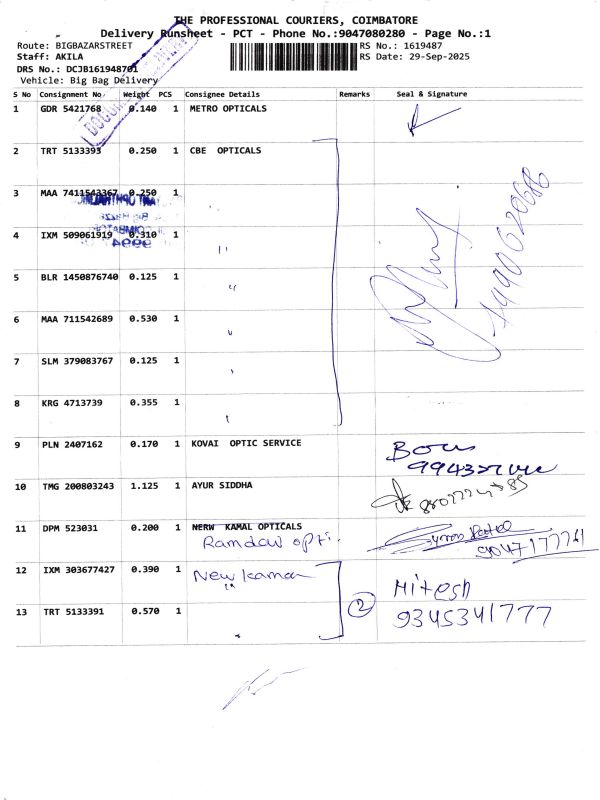 THE PROFESSIONAL COURIERS, COIMBATORE
Delivery Runsheet - PCT - Phone No.:9047080280 - Page No.:1
Route: BIGBAZARSTREET RS No.: 1619487
Staff: AKILA RS Date: 29-Sep-2025
DRS No.: DCJB161948701
Vehicle: Big Bag Delivery
S No Consignment No Weight PCS Consignee Details Remarks Seal & Signature
1 GDR 5421768 0.140 1 METRO OPTICALS
2 TRT 5133393 0.250 1 CBE OPTICALS
3 MAA 7411543367 0.250 1
4 IXM 509061919 0.310 1 "
5 BLR 1450876740 0.125 1 "
6 MAA 711542689 0.530 1 "
7 SLM 379083767 0.125 1
8 KRG 4713739 0.355 1
9 PLN 2407162 0.170 1 KOVAI OPTIC SERVICE
10 TMG 200803243 1.125 1 AYUR SIDDHA
11 DPM 523031 0.200 1 NERW KAMAL OPTICALS
9047177761
12 IXM 303677427 0.390 1 New kamal
"
2
Hitesh
13 TRT 5133391 0.570 1 9345341777